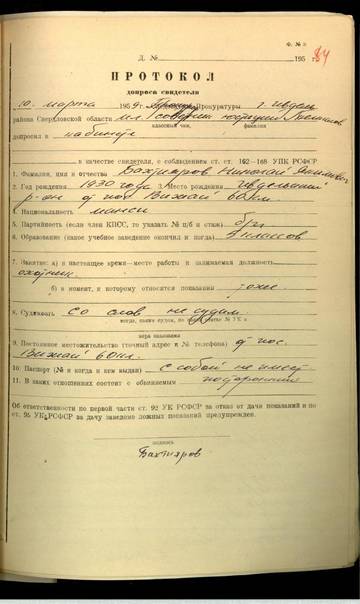 Ф. № 8
Д. № 195 г. 84
ПРОТОКОЛ
допроса свидетеля
10. марта 1959 г. Прокуратуры г. Ивдель
района Свердловской области мл. советник юстиции
классный чин, фамилия
допросил в кабинете
в качестве свидетеля, с соблюдением ст. ст. 162—168 УПК РСФСР
1. Фамилия, имя и отчество Бахтияров Николай Якимович
2. Год рождения 1930 года 3. Место рождения Ивдельский
р-он пос Вижай 60 км.
4. Национальность манси
5. Партийность (если член КПСС, то указать № п/б и стаж) б/п
6. Образование (какое учебное заведение окончил и когда) классов
7. Занятие: а) в настоящее время—место работы и занимаемая должность
охотник
б) в момент, к которому относятся показания тоже
8. Судимость со слов не судим
когда, каким судом, по какой статье УК и
мера наказания
9. Постоянное местожительство (точный адрес и № телефона) пос.
Вижай 60 км.
10. Паспорт (№ и когда и кем выдан) с собой не имеет
11. В каких отношениях состоит с обвиняемым посторонний
Об ответственности по первой части ст. 92 УК РСФСР за отказ от дачи показаний и по
ст. 95 УК РСФСР за дачу заведомо ложных показаний предупрежден.
подпись
Бахтияров